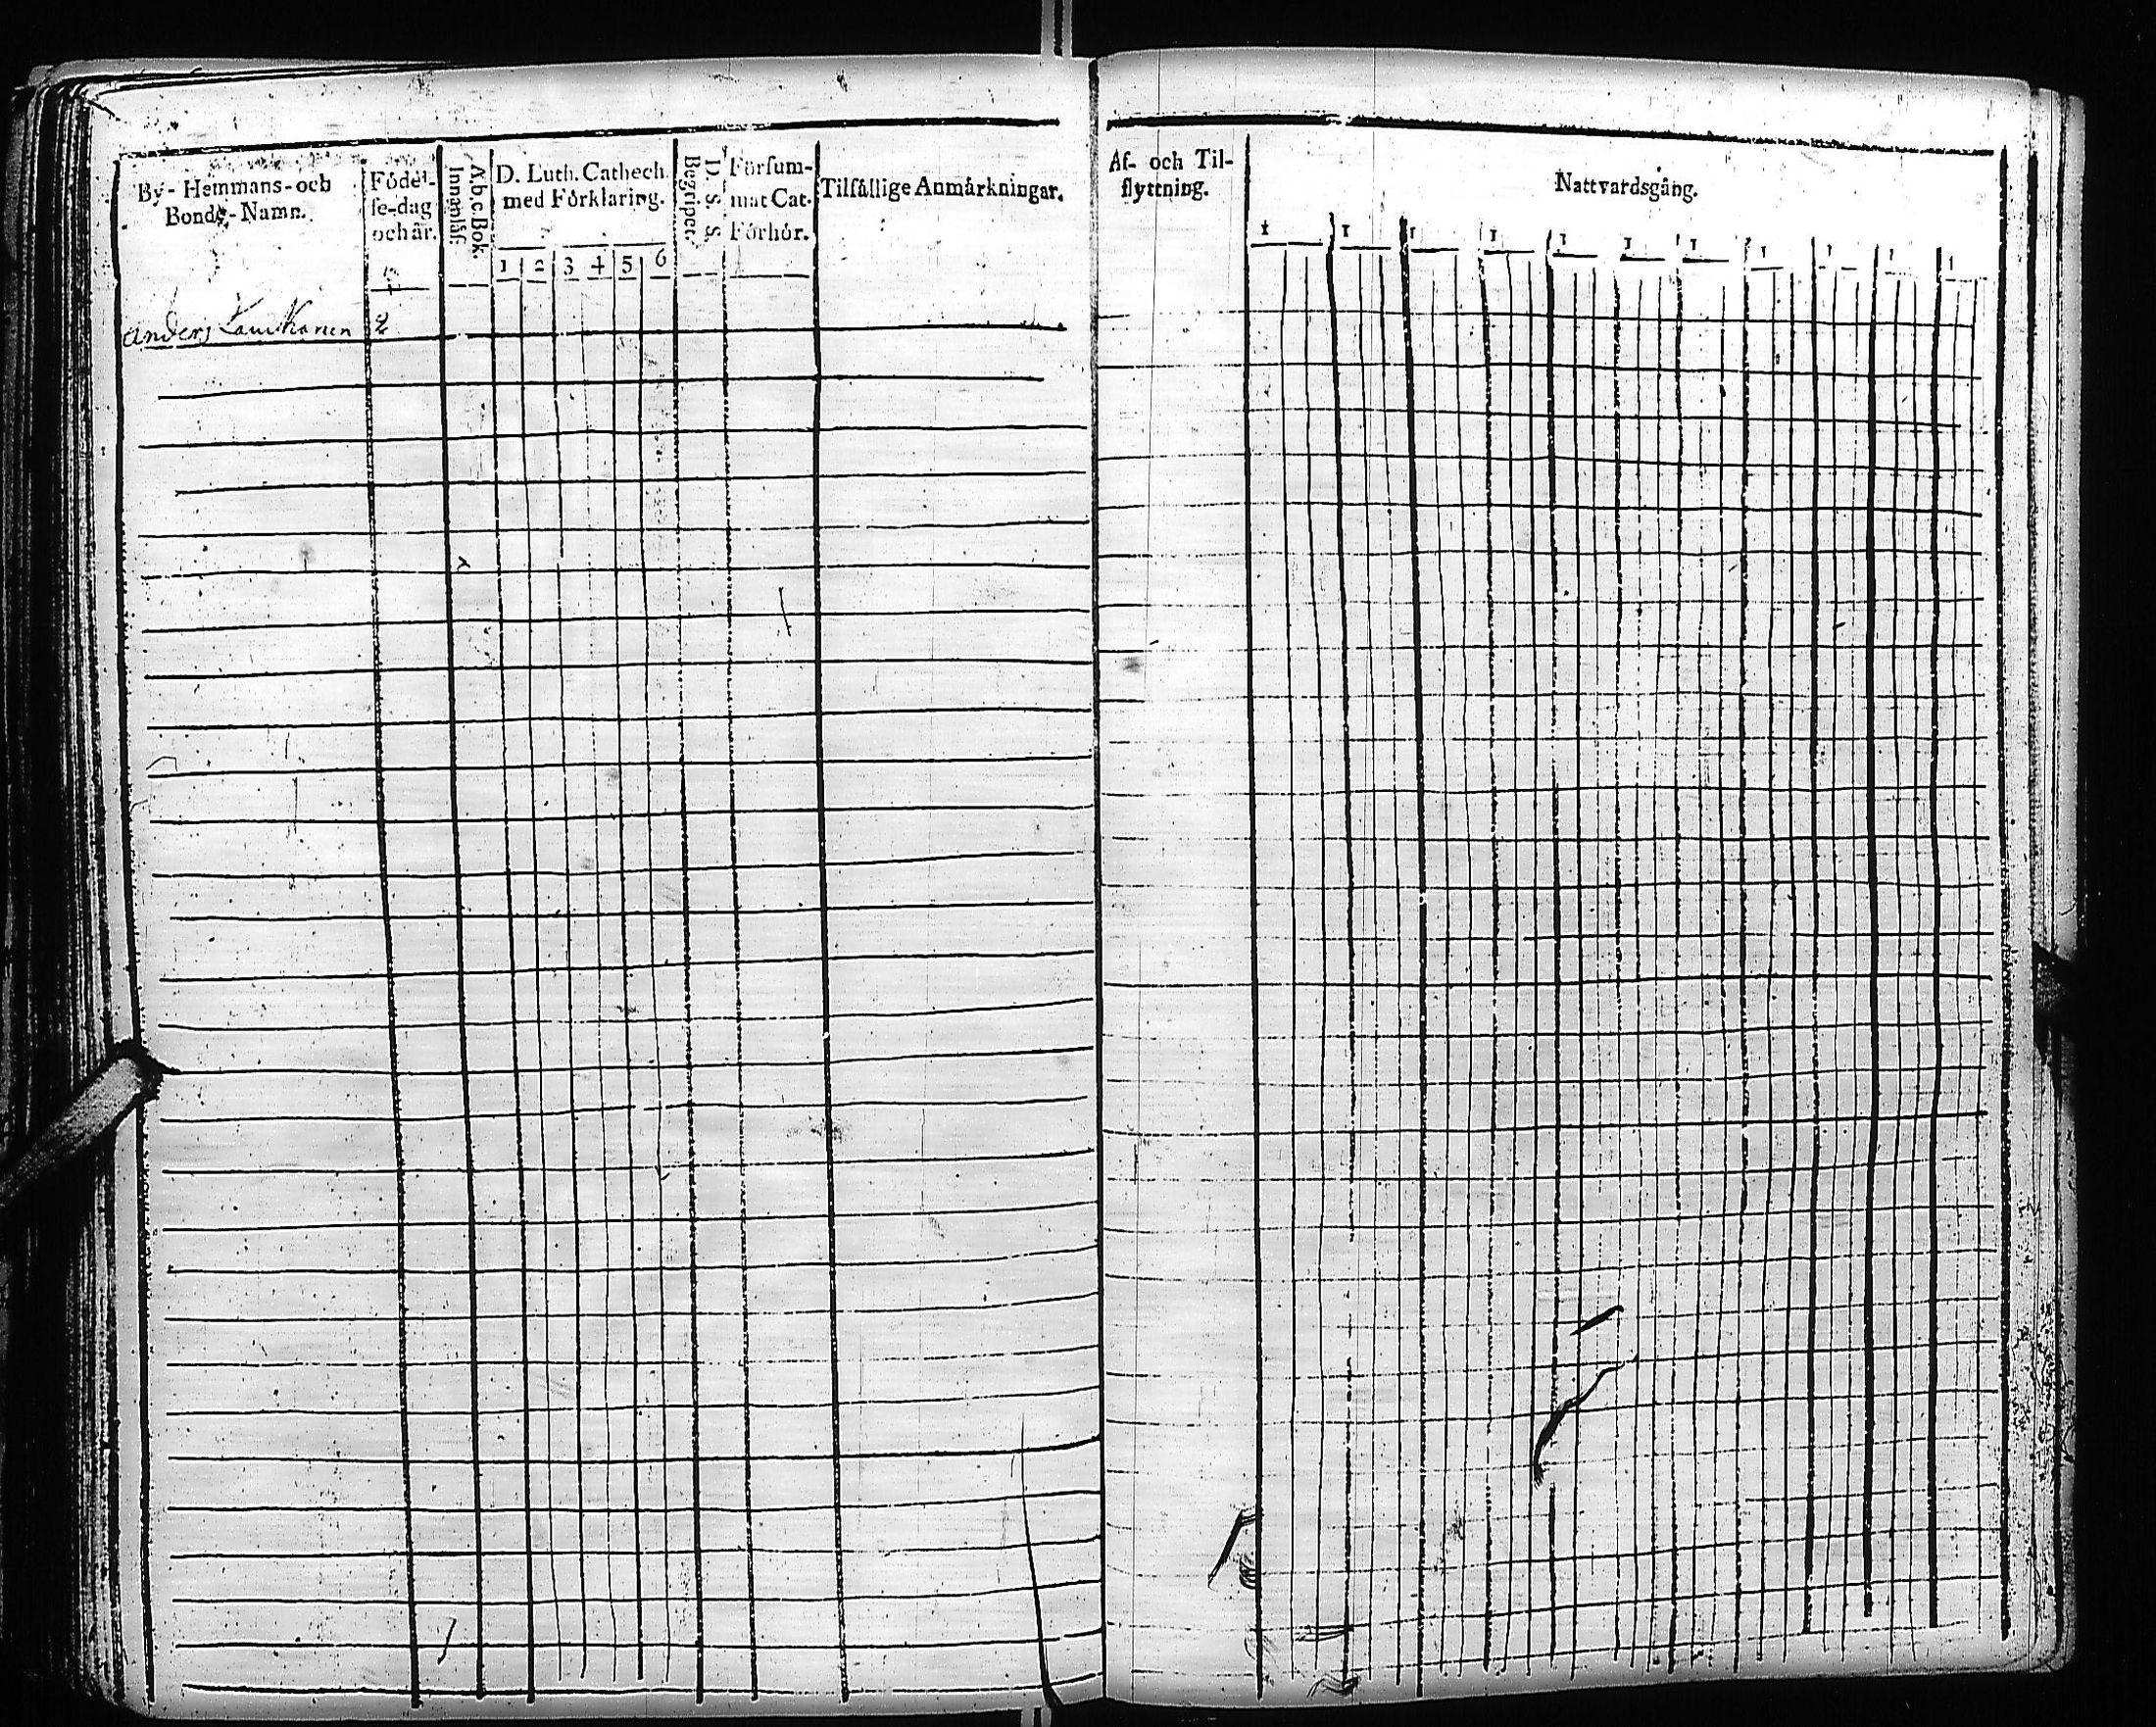 By- Hemmans- och
Bonde-Namn.
Födel-
se-dag
och år.
A.b.c. Bok.
Innanläs.
D. Luth. Cathech.
med Förklaring.
1 2 3 4 5 6
D. S. S.
Begriper.
Försum-
mat Cat.
Förhör.
Tilfällige Anmärkningar.
Anders
Af- och Til-
flyttning.
Nattvardsgång.
1 1 1 1 1 1 1 1 1 1 1